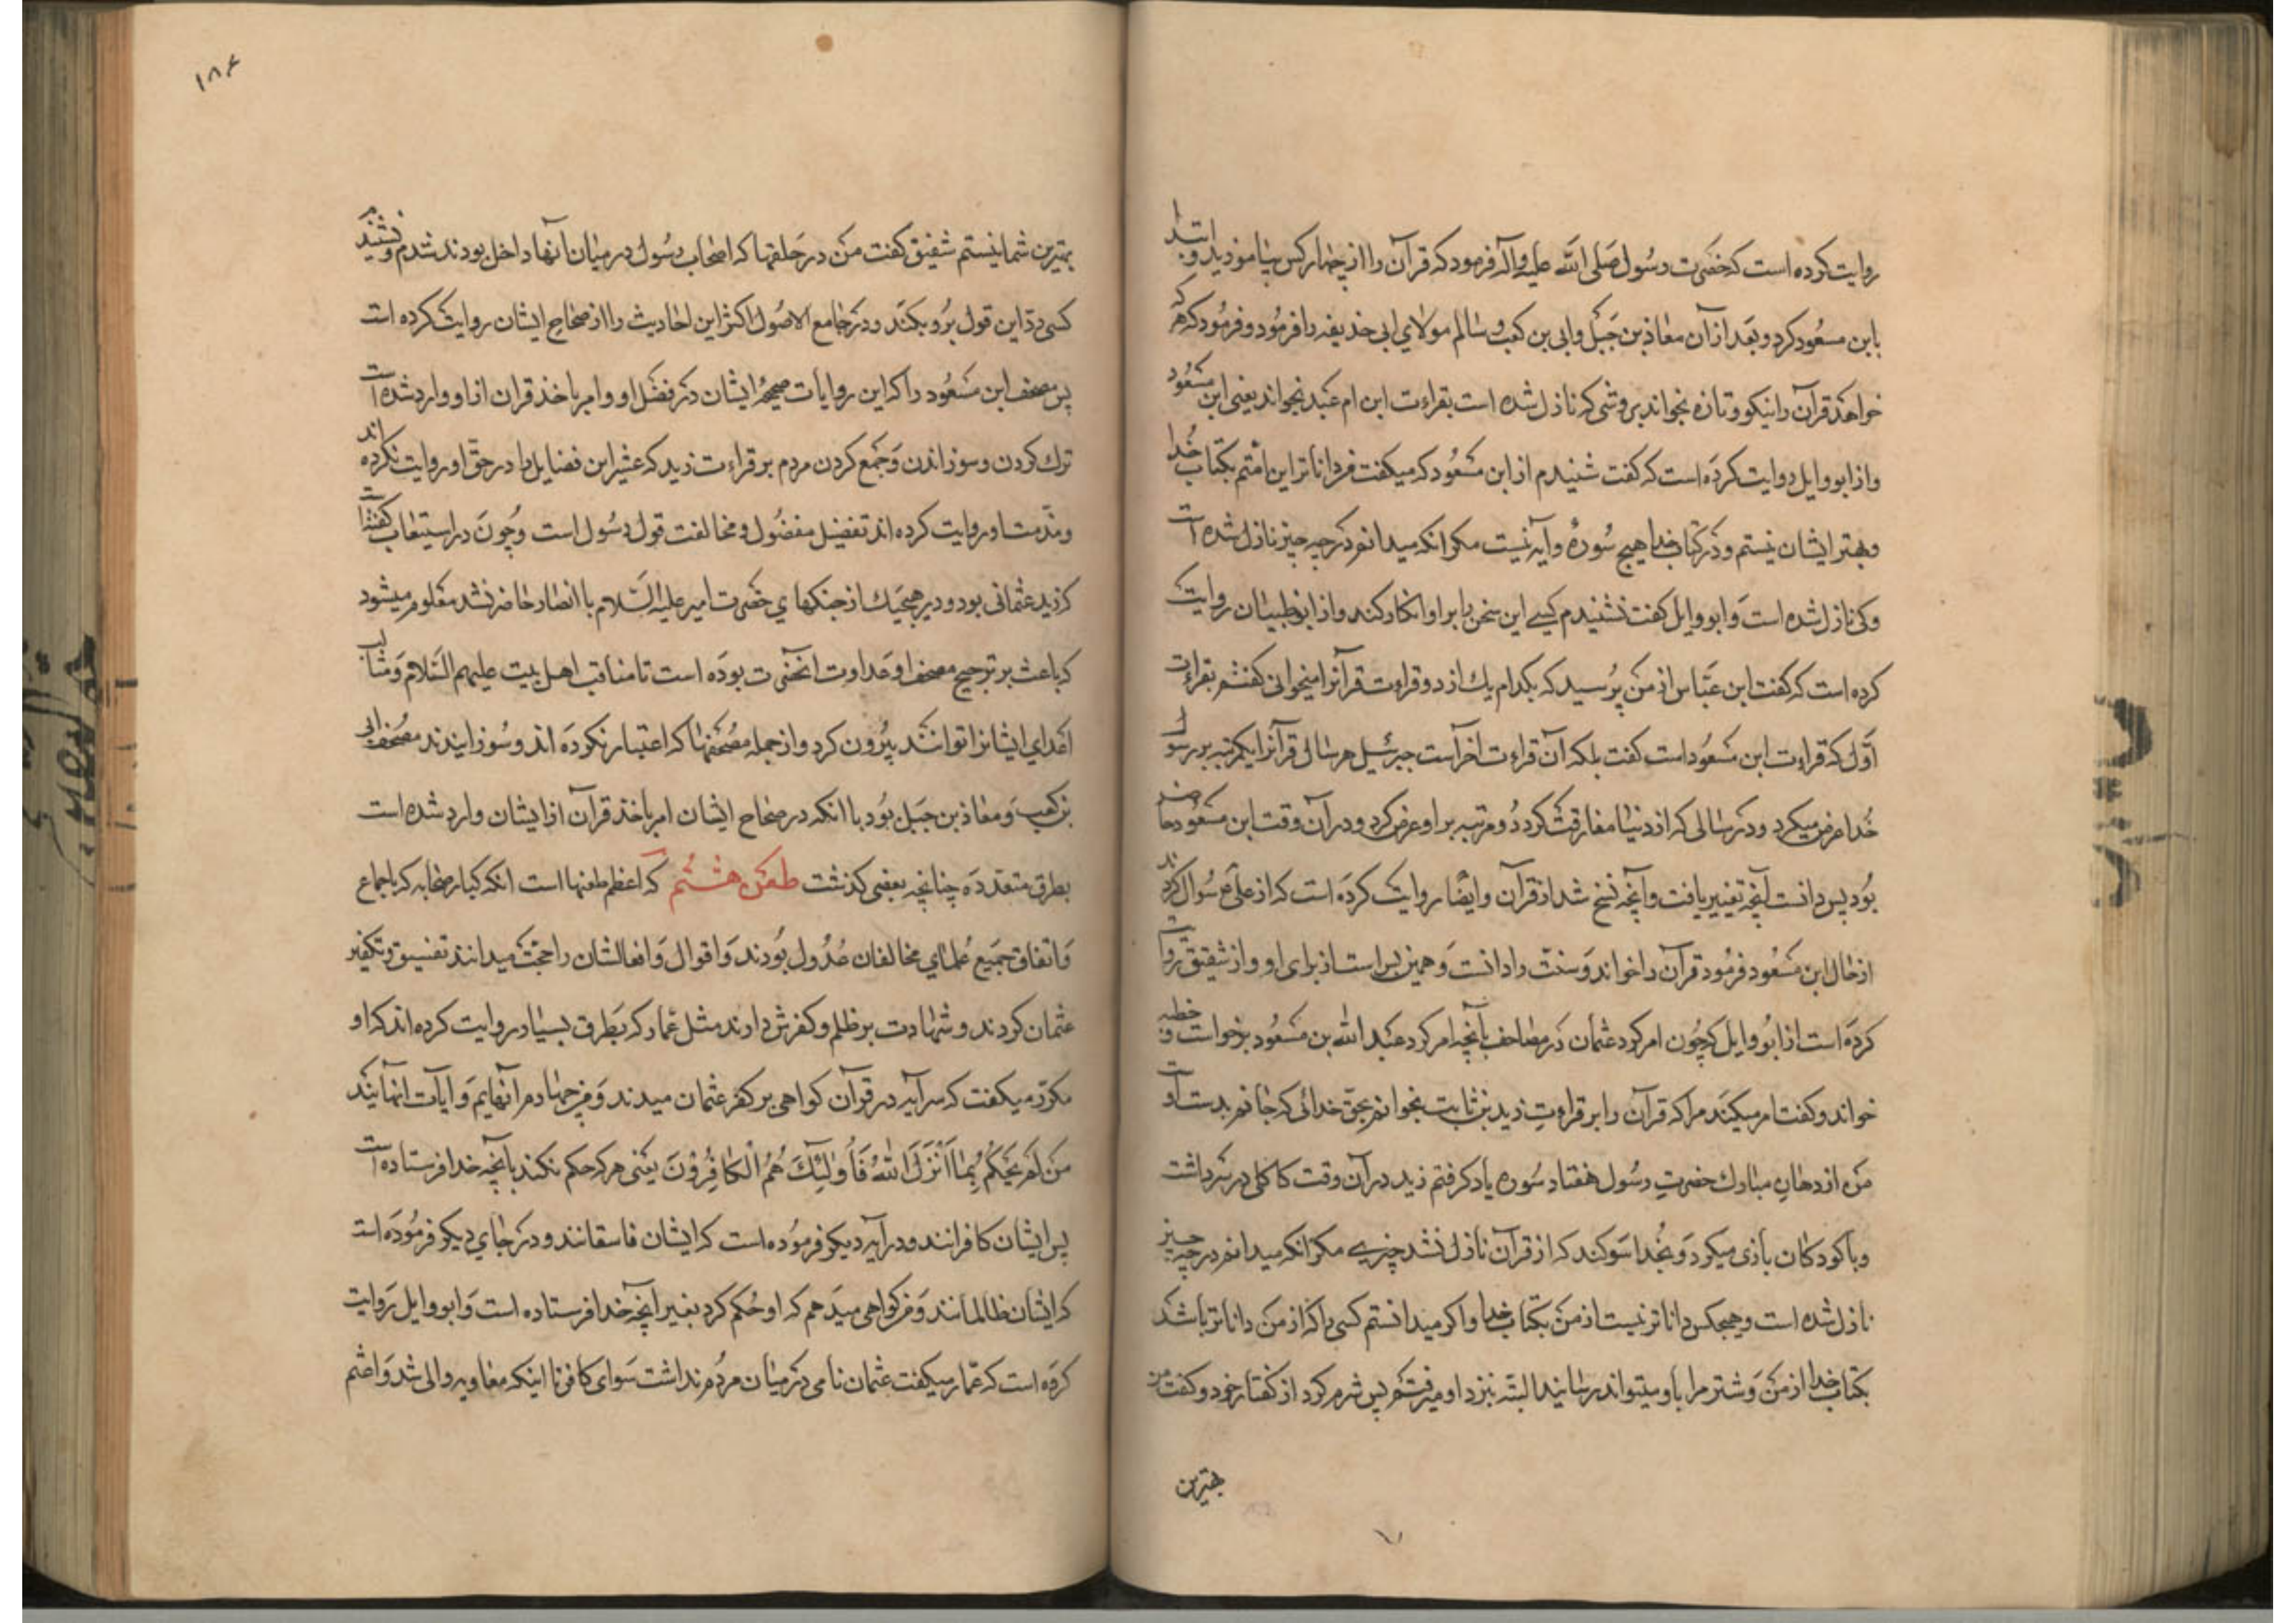 روایت کرده است که حضرت رسول صلی الله علیه وآله فرمود که قرآن را از چهار کس بیاموزید و ابتدا
بابن مسعود کرد و بعد از آن معاذ بن جبل وابی بن کعب و سالم مولای ابی حذیفه را فرمود و فرمود که هر که
خواهد قرآن را نیکو و تازه بخواند بروشی که نازل شده است بقراءت ابن ام عبد بخواند یعنی ابن مسعود
و از ابو وایل روایت کرده است که گفت شنیدم از ابن مسعود که میکفت من داناترین امتم بکتاب خدا
و بهتر ایشان نیستم و در کتاب خدا هیچ سورهٔ و آیه نیست مکر انکه میدانم در چه چیز نازل شده است
وکی نازل شده است و ابو وایل کفت نشنیدم کسی این سخن را بر او انکار کند و از ابو ظبیان روایت
کرده است که کفت ابن عباس از من پرسید که بکدام یك از دو قراءت قرآنرا میخوانی کفتم بقراءت
اول که قراءت ابن مسعود است کفت بلکه آن قراءت آخر است جبرئیل هر سالی قرآنرا یکمرتبه بر رسول
خدا عرض میکرد و در سالی که از دنیا مفارقت کرد دو مرتبه بر او عرض کرد و در آن وقت ابن مسعود حاضر
بود پس دانست آنچه تغییر یافت و آنچه نسخ شد از قرآن و ایضا روایت کرده است که از علی ع سوال کردند
از حال ابن مسعود فرمود قرآن را خواند و سنت را دانست و همین بس است از برای او و از شقیق روایت
کرده است از ابو وایل که چون امر کرد عثمان در مصاحف بآنچه امر کرد عبد الله بن مسعود برخواست و خطبه
خواند و کفت امر میکنند مرا که قرآن را بر قراءت زید بن ثابت بخوانم بحق خدائی که جانم بدست اوست
من از دهان مبارك حضرت رسول هفتاد سوره یاد کرفتم زید در آن وقت کاکلی در سر داشت
و با کودکان بازی میکرد و بخدا سوکند که از قرآن نازل نشد چیزی مکر انکه میدانم در چه چیز
نازل شده است و هیچکس داناتر نیست از من بکتاب خدا و اکر میدانستم کسی را که از من داناتر باشد
بکتاب خدا از من و شتر مرا باو میتواند رسانید البته بنزد او میرفتم پس شرم کرد از کفتار خود و کفت من
بهترین
۱۸۶
بهترین شما نیستم شقیق کفت من در حلقها که اصحاب رسول در میان آنها داخل بودند شدم و نشنیدم
کسی رد این قول برو بکند و در جامع الاصول اکثر این احادیث را از صحاح ایشان روایت کرده است
پس مصحف ابن مسعود را که این روایات صحیحهٔ ایشان در فضل او و امر باخذ قران از او وارد شده است
ترك کردن و سوزاندن و جمع کردن مردم بر قراءت زید که عشر این فضایل را در حق او روایت نکرده اند
و مذمت او روایت کرده اند تفضیل مفضول و مخالفت قول رسول است و چون در استیعاب گفته است
که زید عثمانی بود و در هیچیك از جنکهای حضرت امیر علیه السلام با انصار حاضر نشد معلوم میشود
که باعث بر ترجیح مصحف او عداوت آنحضرت بوده است تا مناقب اهل بیت علیهم السلام و مثالب
اعدای ایشانرا توانند بیرون کرد و از جمله مصحفها که اعتبار نکرده اند و سوزانیدند مصحف ابی
بن کعب و معاذ بن جبل بود با انکه در صحاح ایشان امر باخذ قرآن از ایشان وارد شده است
بطرق متعدده چنانچه بعضی کذشت طعن هشتم که اعظم طعنها است انکه کبار صحابه که باجماع
و اتفاق جمیع علمای مخالفان عدول بودند و اقوال و افعالشان را حجت میدانند تفسیق و تکفیر
عثمان کردند و شهادت بر ظلم و کفرش دارند مثل عمار که بطرق بسیار روایت کرده اند که او
مکرر میکفت که سه آیه در قرآن کواهی بر کفر عثمان میدند و من چهارم آنهایم و آیات انها اینند
مَن لَم یَحکُم بِما اَنزَلَ اللهُ فَأُولئِكَ هُمُ الکافِرُونَ یعنی هر که حکم نکند بآنچه خدا فرستاده است
پس ایشان کافرانند و در آیه دیکر فرموده است که ایشان فاسقانند و در جای دیکر فرموده است
که ایشان ظالمانند و من کواهی میدهم که او حکم کرد بغیر آنچه خدا فرستاده است و ابو وایل روایت
کرده است که عمار میکفت عثمان نامی در میان مردم نداشت سوای کافر تا اینکه معاویه والی شد و اعثم